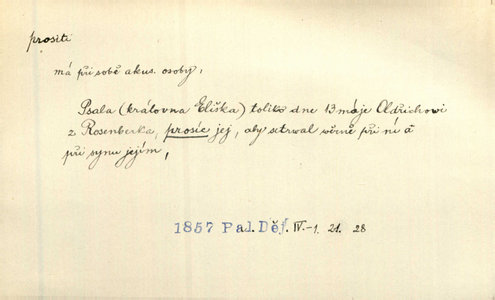 prositi
má při sobě akus. osoby,
Psala (královna Eliška) toliko dne 13 máje Oldřichowi
z Rosenberka, prosíc jej, aby setrwal wěrně při ní a
při synu jejím,
1857 Pal. Děj. IV-1. 21. 28